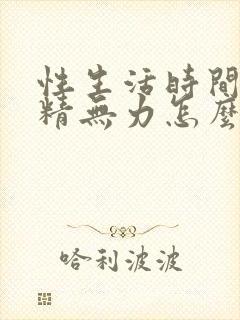 性生活時間
精無力怎麼
哈利波波